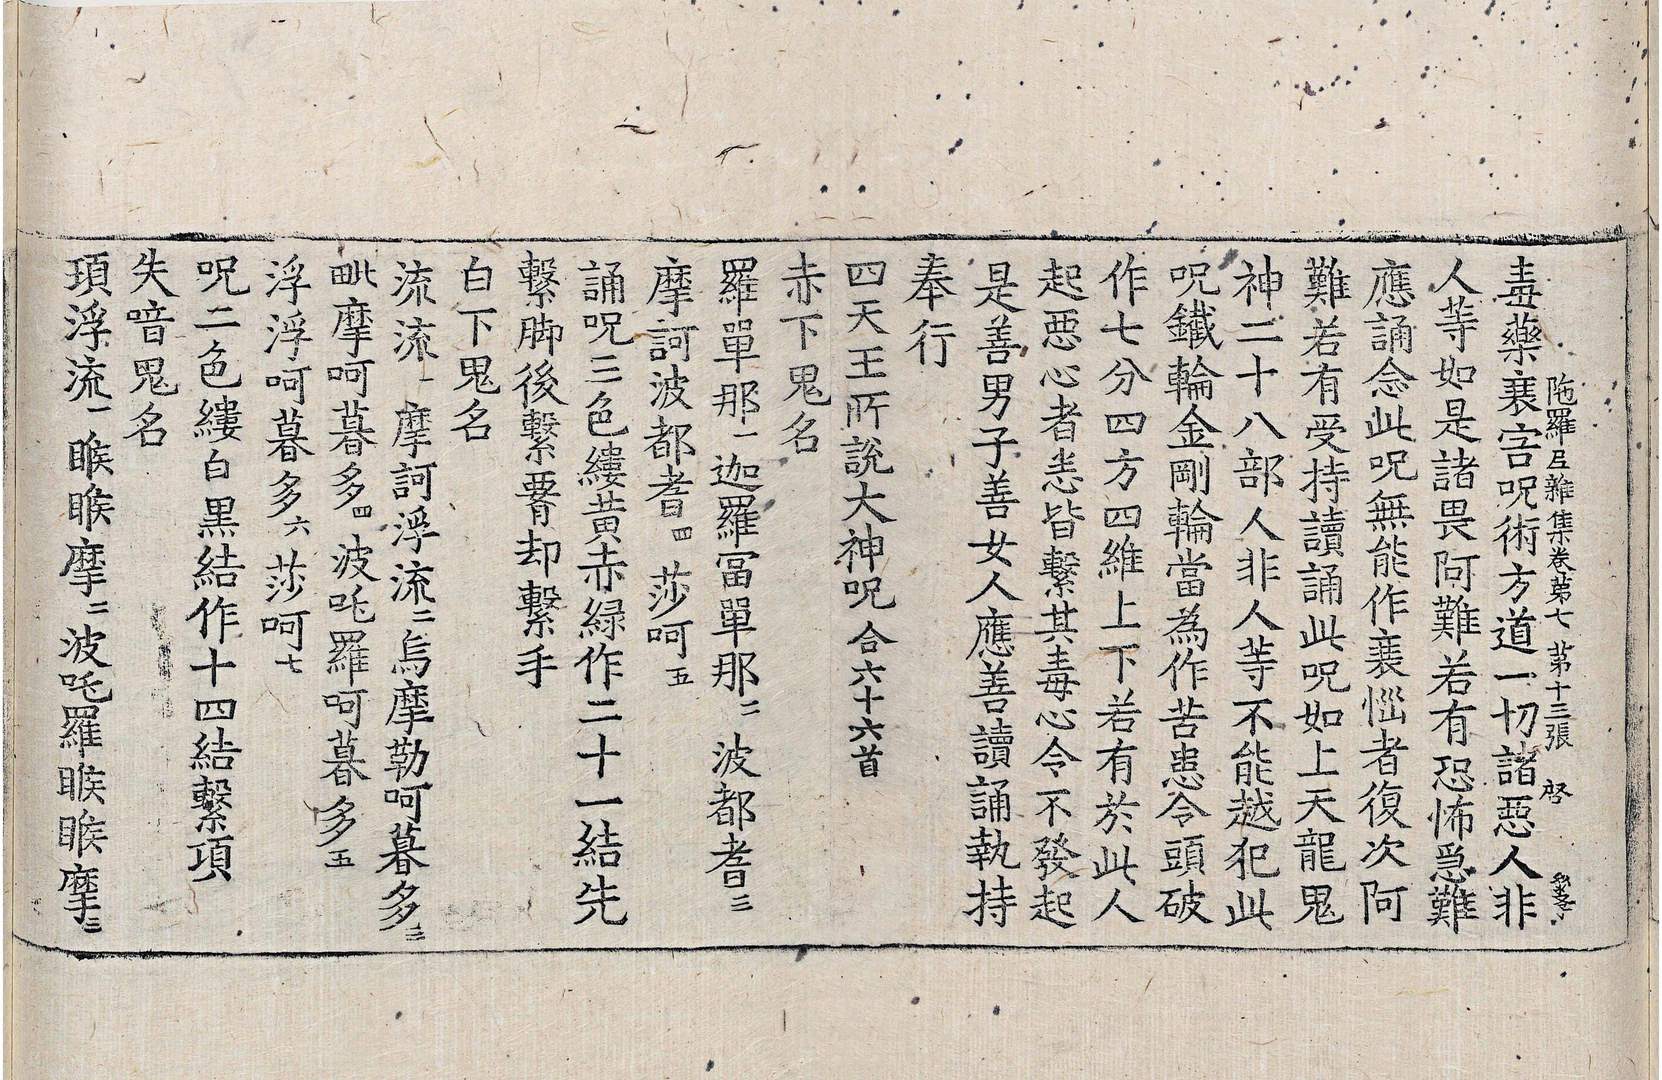 陁羅尼雜集卷第七 第十三張 啓
毒藥襄害呪術方道一切諸惡人非
人等如是諸畏阿難若有恐怖急難
應誦念此呪無能作襄惱者復次阿
難若有受持讀誦此呪如上天龍鬼
神二十八部人非人等不能越犯此
呪鐵輪金剛輪當為作苦患令頭破
作七分四方四維上下若有於此人
起惡心者悉皆繫其毒心令不發起
是善男子善女人應善讀誦執持
奉行
四天王所說大神呪 合六十六首
赤下鬼名
羅單那一迦羅冨單那二波都耆三
摩訶波都耆四 莎呵五
誦呪三色縷黄赤緑作二十一結先
繫脚後繫䯒却繫手
白下鬼名
流流一 摩訶浮流二烏摩勒呵暮多三
毗摩呵暮多四波吒羅呵暮多五
浮浮呵暮多六 莎呵七
呪二色縷白黒結作十四結繫項
失喑鬼名
項浮流一 睺睺摩二波吒羅睺睺摩三